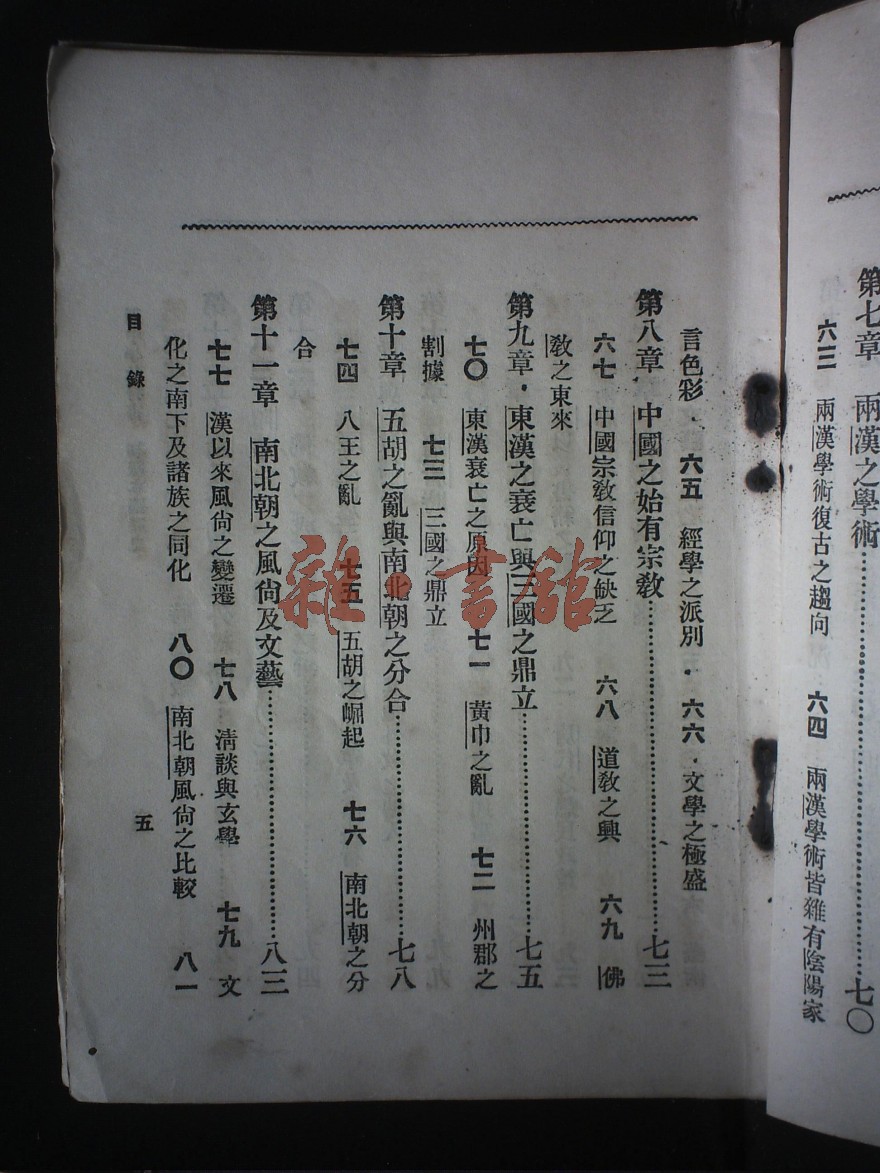 第七章　兩漢之學術……………………七〇
六三　兩漢學術復古之趨向　六四　兩漢學術皆雜有陰陽家
言色彩．六五　經學之派別．六六．文學之極盛
第八章　中國之始有宗敎……………………七三
六七　中國宗敎信仰之缺乏　六八　道敎之興　六九　佛
敎之東來
第九章．東漢之衰亡與三國之鼎立……………………七五
七〇　東漢衰亡之原因　七一　黃巾之亂　七二　州郡之
割據　七三　三國之鼎立
第十章　五胡之亂與南北朝之分合……………………七八
七四　八王之亂　七五　五胡之崛起　七六　南北朝之分
合
第十一章　南北朝之風尙及文藝……………………八三
七七　漢以來風尙之變遷　七八　淸談與玄學　七九　文
化之南下及諸族之同化　八〇　南北朝風尙之比較　八一
目錄
五
雜·書館